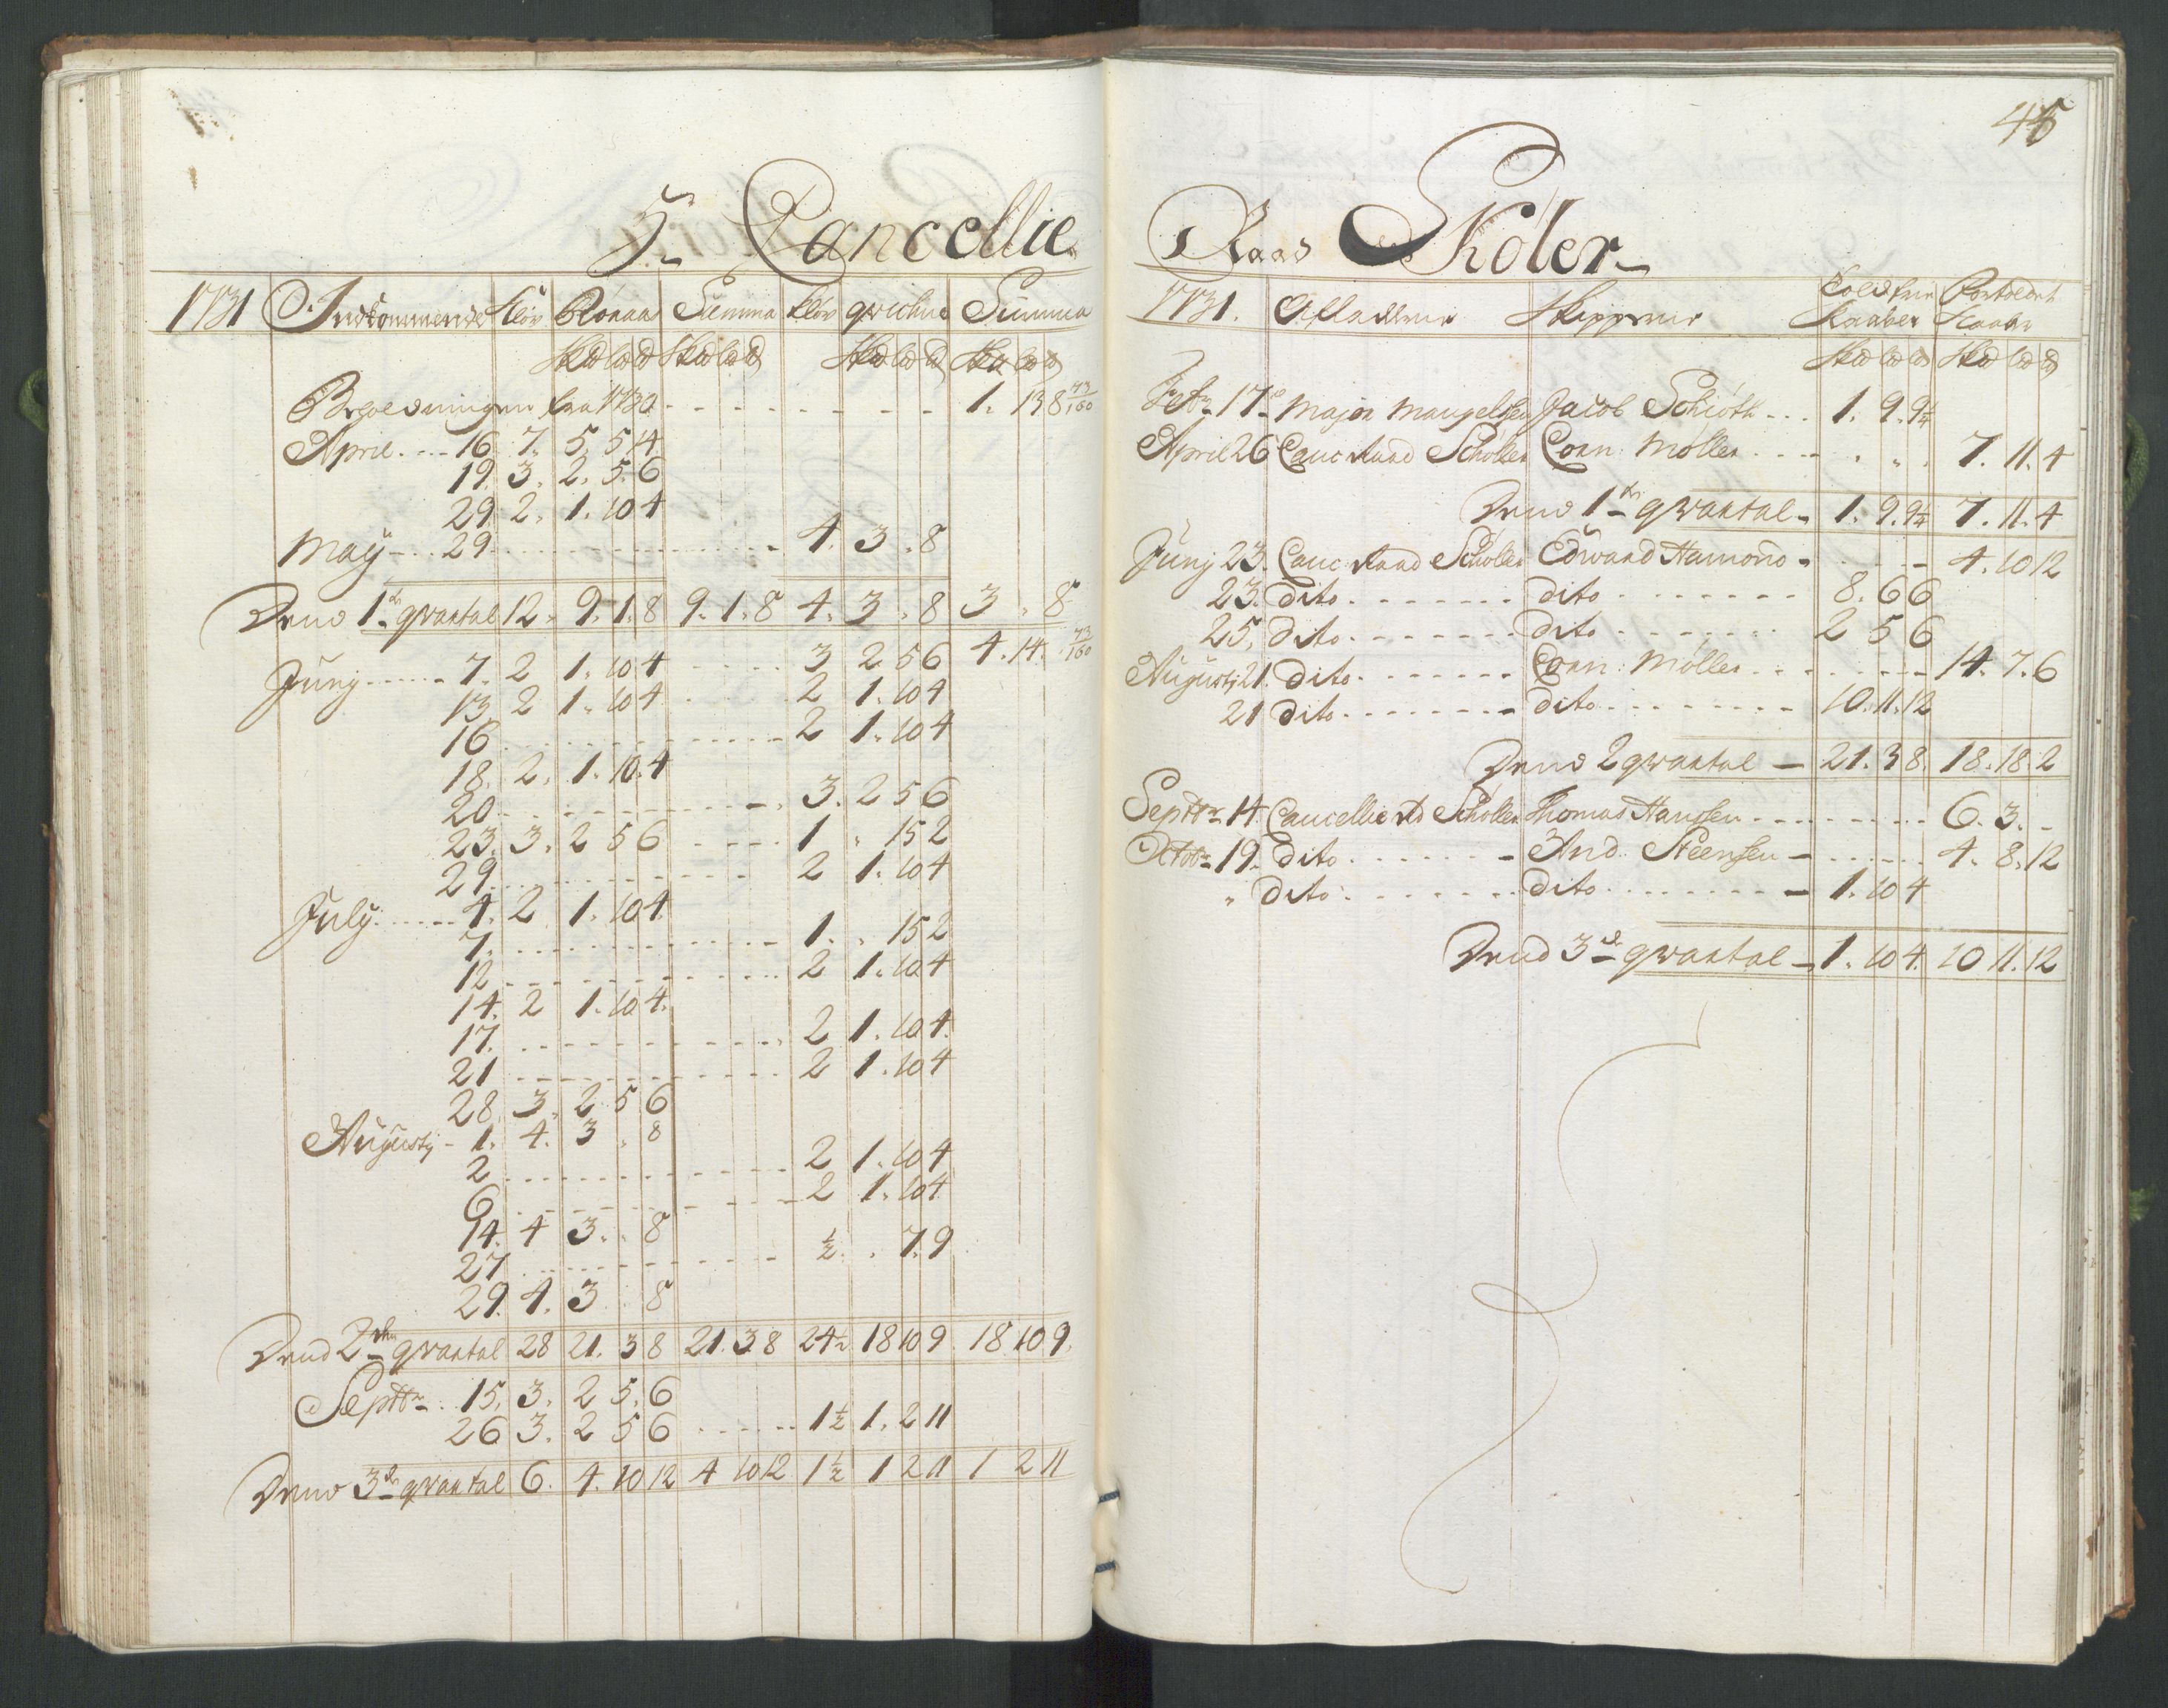 5. Cancellie
1731 Indkommende Kløv Røraas Summa Kløv qvichne Summa
Skd Ld d Skd Ld d Skd Ld d Skd Ld d
Beholdningen fra 1730 1. 13 8 73/160
April 16 7. 5. 5 14
19. 3. 2. 5. 6
29. 2. 1. 10 4
May 29 4. 3 . 8
Dend 1ste qvartal 12. 9. 1. 8 9. 1. 8 4. 3 . 8 3 . 8
4. 14. 73/160
Junj 7. 2 1. 10 4 3 2 5 6
13 2 1. 10 4 2 1. 10 4
16 2 1. 10 4
18. 2. 1. 10. 4
20 3. 2 5 6
23. 3. 2 5 6 1 . 15 2
29. 2 1. 10 4
July 4. 2 1. 10 4.
7. 1. . 15 2
12 2 1. 10 4
14. 2 1. 10 4.
17. 2 1. 10 4.
21 2 1. 10 4
28 3. 2 5 6
Augustj 1. 4. 3 . 8
2 2 1. 10 4
6 2 1. 10 4
14. 4 3. . 8
27 ½ . 7. 9
29. 4. 3 8
Dend 2den qvartal 28 21. 3 8 21. 3 8 24½ 18 10 9 18. 10 9.
Septbr 15. 3. 2 5. 6
26 3. 2 5 6 1½ 1. 2 11
Dend 3de qvartal 6. 4. 10 12 4 10 12 1½ 1 2 11 1 2 11
45
Raad Skøler
1731. Afladerne Skipperne Toldfrie Kaaber Fortoldet Kaaber
Skd Ld d Skd Ld d
Febr 17 Major Mangelsen Jacob Schiøth 1. 9. 9¼
April 26 Canc Raad Schøller Corn: Møller 7. 11. 4
Dend 1ste qvartal 1. 9. 9¼ 7. 11. 4
Junj 23. Canc Raad Schøller Edward Hamond 4. 10 12
23. dito dito 8. 6 6
25. dito dito 2 5 6
Augustj 21. dito Corn: Møller 14. 7. 6
21 dito dito 10. 11. 12
Dend 2 qvartal 21. 3 8. 18. 18. 2
Septbr 14. Cancellie Rd Schøller Thomas Hansen 6. 3.
Octobr 19. dito And. Steensen 4. 8. 12
" dito dito 1. 10 4
Dend 3de qvartal 1. 10 4. 10 11. 12